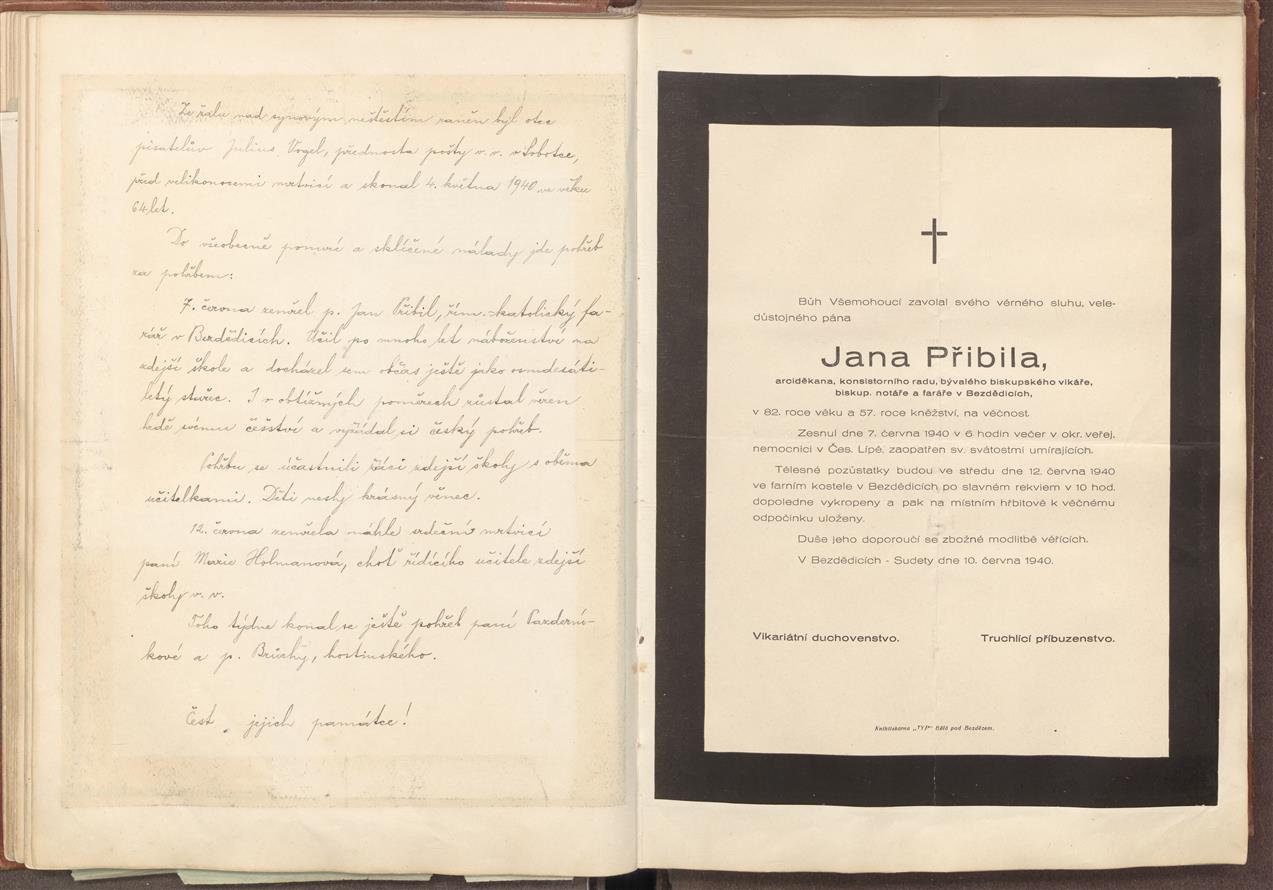 Ze žalu nad synovým neštěstím raněn byl otec
pisatelův Julius Vogel, přednosta pošty v. v. v Sobotce,
před velikonocemi mrtvicí a skonal 4. května 1940 ve věku
64 let.
Do všeobecně ponuré a sklíčené nálady jde pohřeb
za pohřbem:
7. června zemřel p. Jan Přibil, řím. katolický fa-
rář v Bezdědicích. Učil po mnoho let náboženství na
zdejší škole a docházel sem občas ještě jako osmdesáti-
letý stařec. I v obtížných poměrech zůstal věren
svému češství a vyžádal si český pohřeb.
Pohřbu se účastnili žáci zdejší školy s oběma
učitelkami. Děti nesly krásný věnec.
12. června zemřela náhle srdeční mrtvicí
paní Marie Holmanová, choť řídícího učitele zdejší
školy v. v.
Toho týdne konal se ještě pohřeb paní Pazderní-
kové a p. Brůchy, hostinského.
Čest jejich památce!
Bůh Všemohoucí zavolal svého věrného sluhu, vele-
důstojného pána
Jana Přibila,
arciděkana, konsistorního radu, bývalého biskupského vikáře,
biskup. notáře a faráře v Bezdědicích,
v 82. roce věku a 57. roce kněžství, na věčnost.
Zesnul dne 7. června 1940 v 6 hodin večer v okr. veřej.
nemocnici v Čes. Lípě, zaopatřen sv. svátostmi umírajících.
Tělesné pozůstatky budou ve středu dne 12. června 1940
ve farním kostele v Bezdědicích po slavném rekviem v 10 hod.
dopoledne vykropeny a pak na místním hřbitově k věčnému
odpočinku uloženy.
Duše jeho doporoučí se zbožné modlitbě věřících.
V Bezdědicích - Sudety dne 10. června 1940.
Vikariátní duchovenstvo. Truchlící příbuzenstvo.
Knihtiskarna „TYP“ Bělá pod Bezdězem.